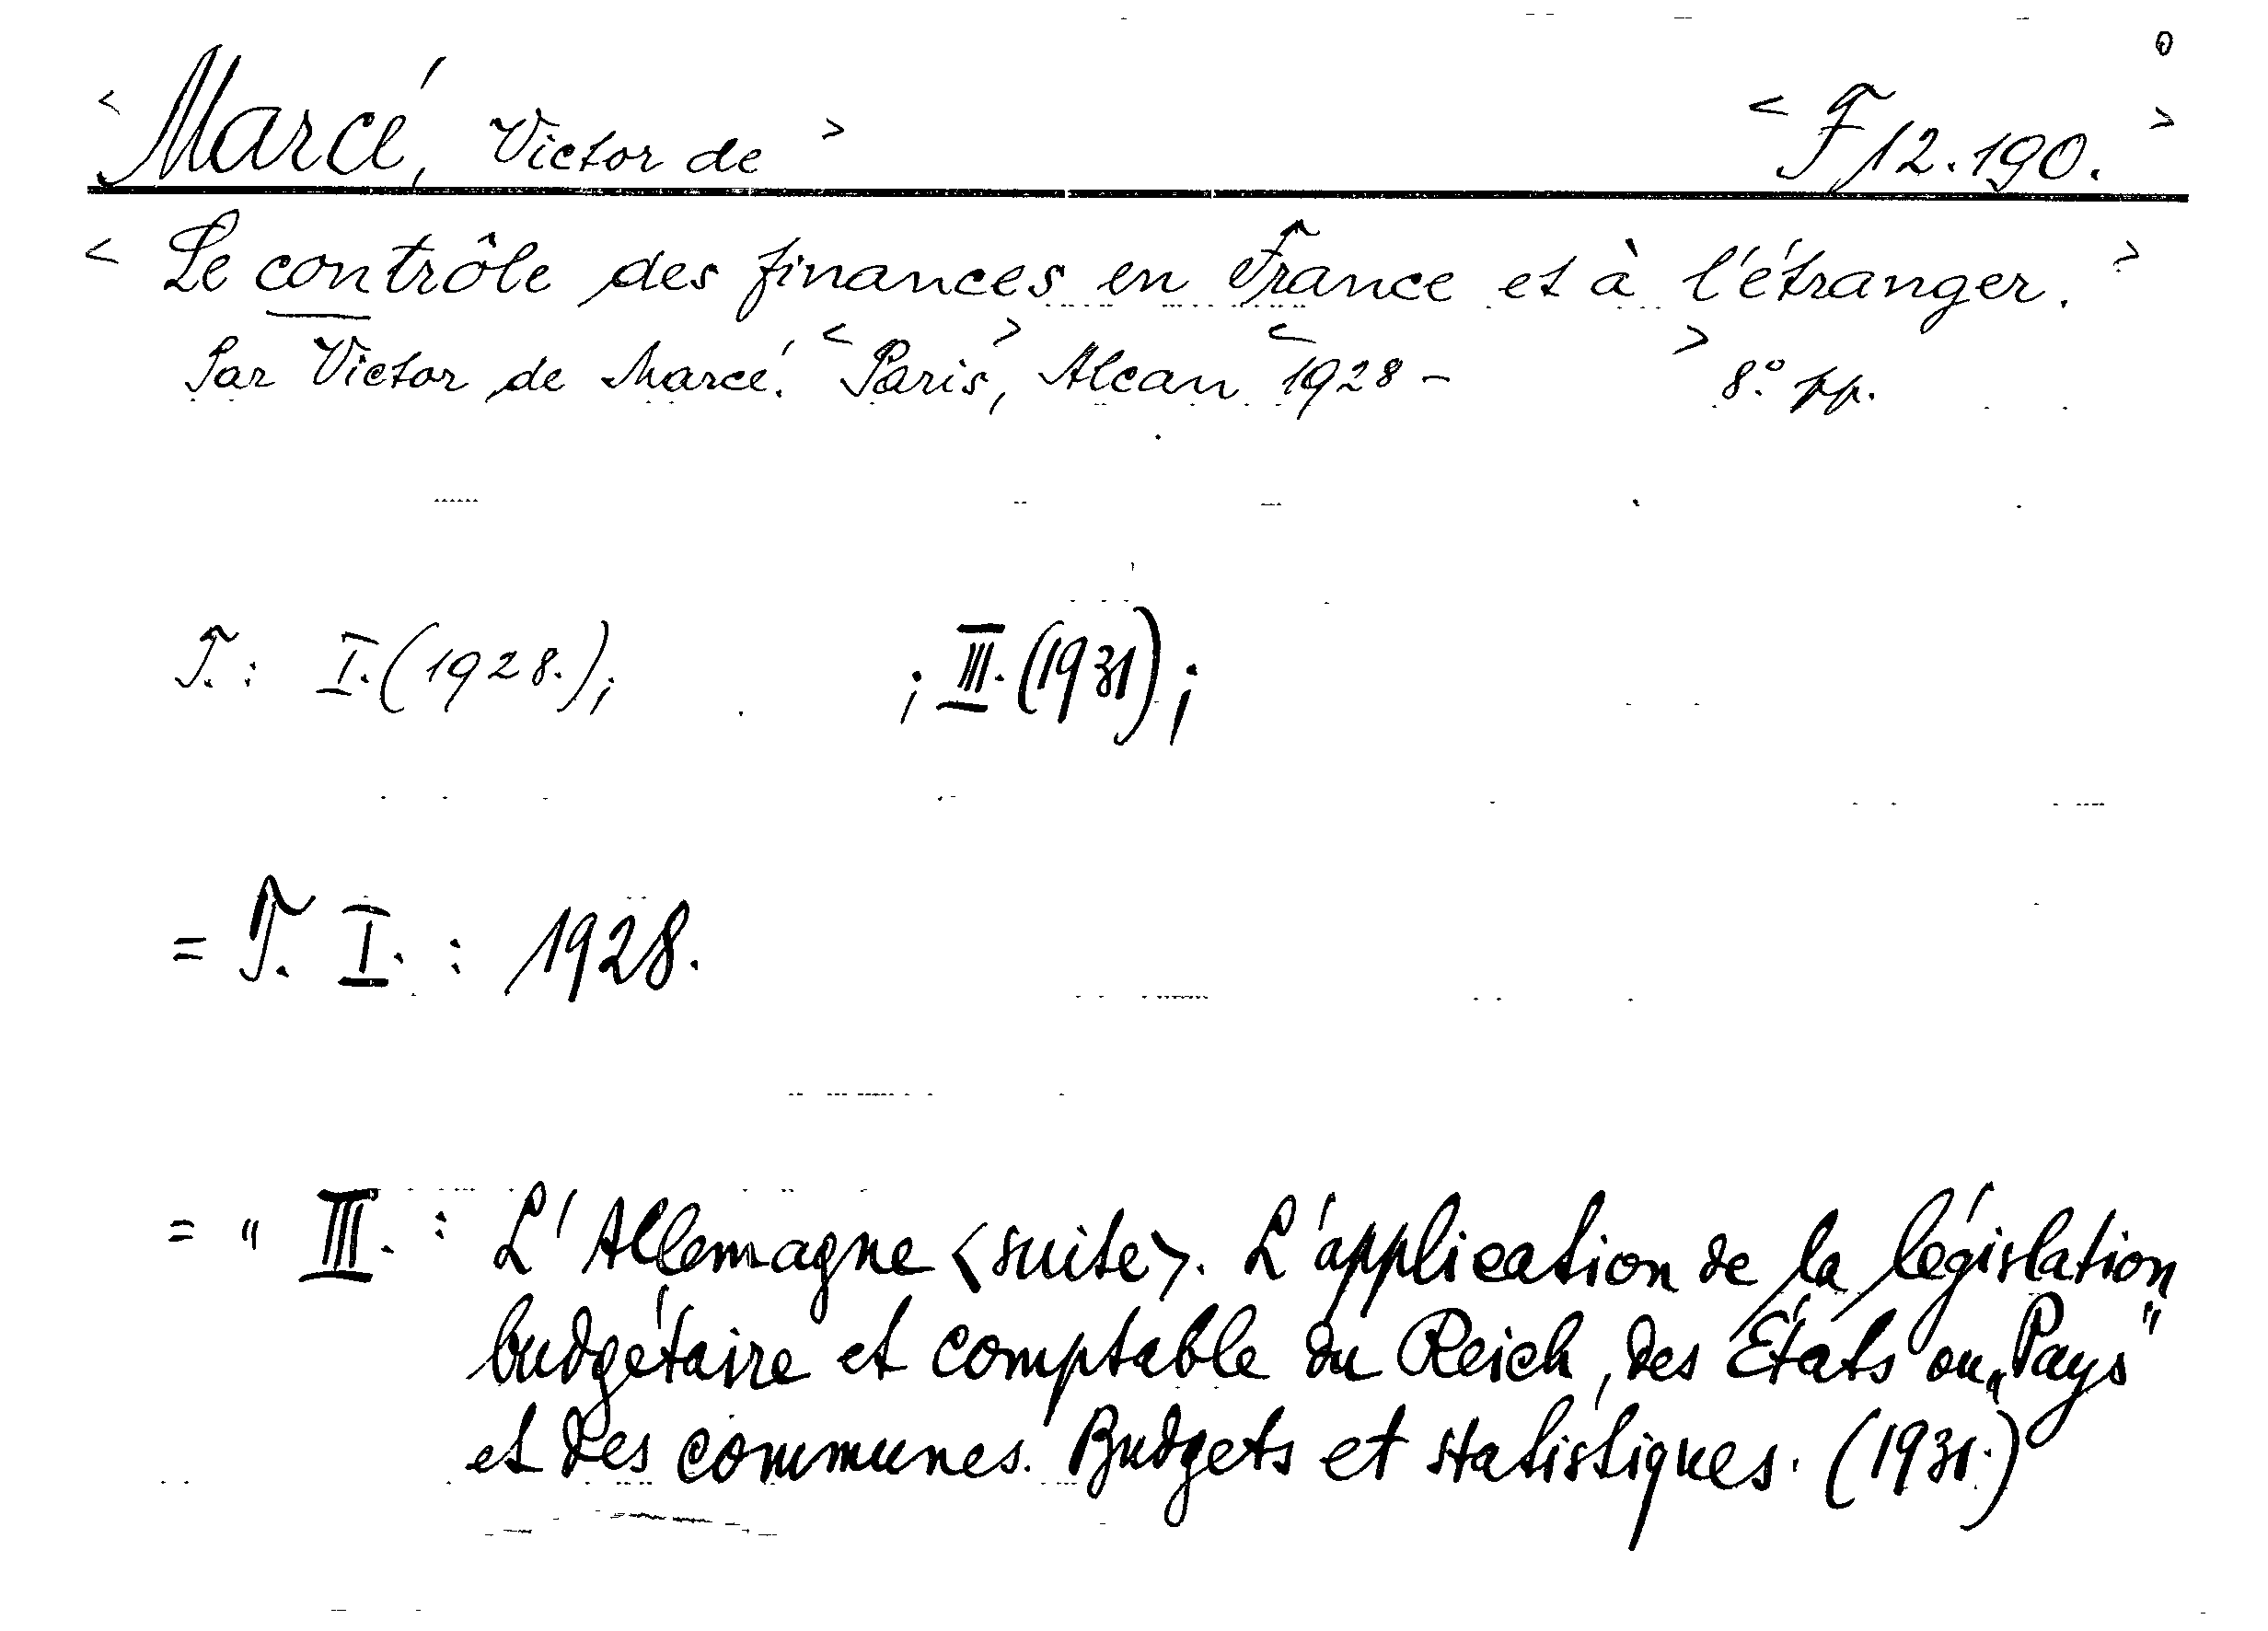 < Marcé, Victor de > < F 12.190. >
< Le contrôle des finances en France et à l'étranger. >
Par Victor de Marcé. < Paris >, Alcan < 1928 - > 8.° pp.
T. : I. (1928.); ; III. (1931) ;
= T. I. : 1928.
= " III. : L'Allemagne <suite>. L'application de la législation
budgétaire et comptable du Reich, des États ou „Pays"
et des communes. Budgets et statistiques. (1931.)